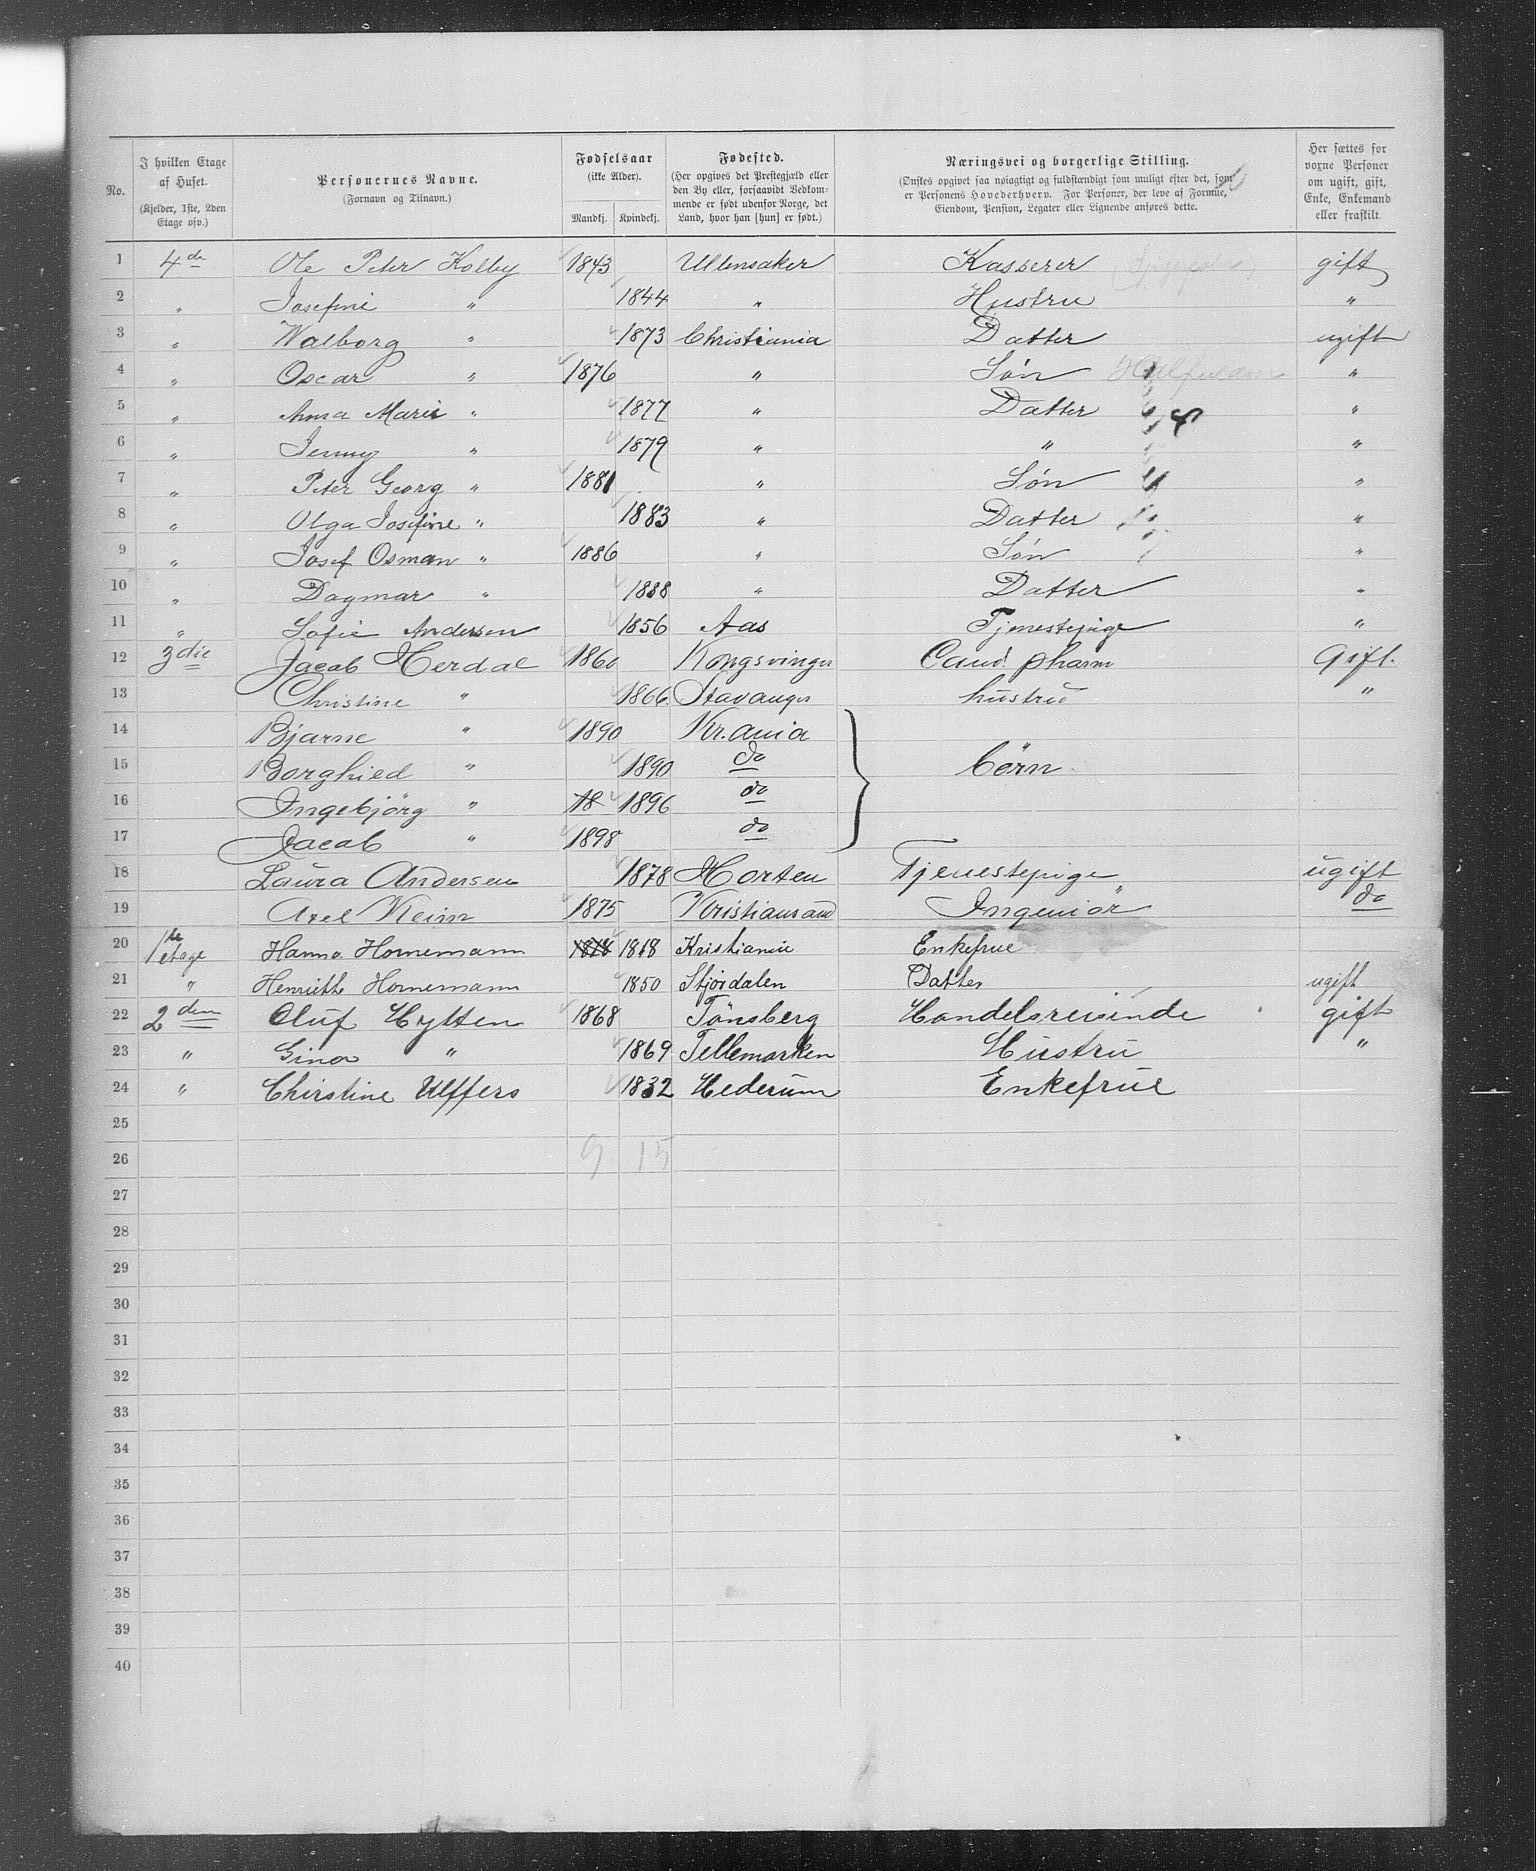 No.
I hvilken Etage af Huset. (Kjelder, 1ste, 2den Etage osv.)
Personernes Navne. (Fornavn og Tilnavn.)
Fødselsaar (ikke Alder). Mandkj. Kvindekj.
Fødested. (Her opgives det Prestegjæld eller den By eller, forsaavidt Vedkommende er født udenfor Norge, det Land, hvor han [hun] er født.)
Næringsvei og borgerlige Stilling. (Ønskes opgivet saa nøiagtigt og fuldstændigt som muligt efter det, som er Personens Hovederhverv. For Personer, der leve af Formue, Eiendom, Pension, Legater eller Lignende anføres dette.
Her sættes for voxne Personer om ugift, gift, Enke, Enkemand eller fraskilt.
1 4de Ole Peter Kolby 1843 Ullensaker Kasserer gift
2 " Josefine " 1844 " Hustru "
3 " Walborg " 1873 Christiania Datter ugift
4 " Oscar " 1876 " Søn "
5 " Anna Marie " 1877 " Datter "
6 " Jenny " 1879 " " "
7 " Peter Georg " 1881 " Søn "
8 " Olga Josefine " 1883 " Datter "
9 " Josef Osman " 1886 " Søn "
10 " Dagmar " 1888 " Datter "
11 " Sofie Andersen 1856 Aas Tjenestepige "
12 3die Jacob Herdal 1860 Kongsvinger Cand. pharm Gift.
13 Christine " 1866 Stavanger hustru "
14 Bjarne " 1890 Kr.ania
15 Borghied " 1890 do börn.
16 Ingebjörg " 18 1896 do
17 Jacob " 1898 do
18 Laura Andersen 1878 Horten Tjenestepige ugift
19 Axel Keim 1875 Kristiansand Ingeniör do
20 1ste etage Hanna Hornemann 1818 1818 Kristiania Enkefrue
21 " Henriette Hornemann 1850 Stjørdalen Datter ugift
22 2den Oluf Hytten 1868 Tönsberg Handelsreisende gift
23 " Gina " 1869 Tellemarken Hustru "
24 " Chirstine Ulffers 1832 Hederum Enkefrue
25
26 9 15
27
28
29
30
31
32
33
34
35
36
37
38
39
40